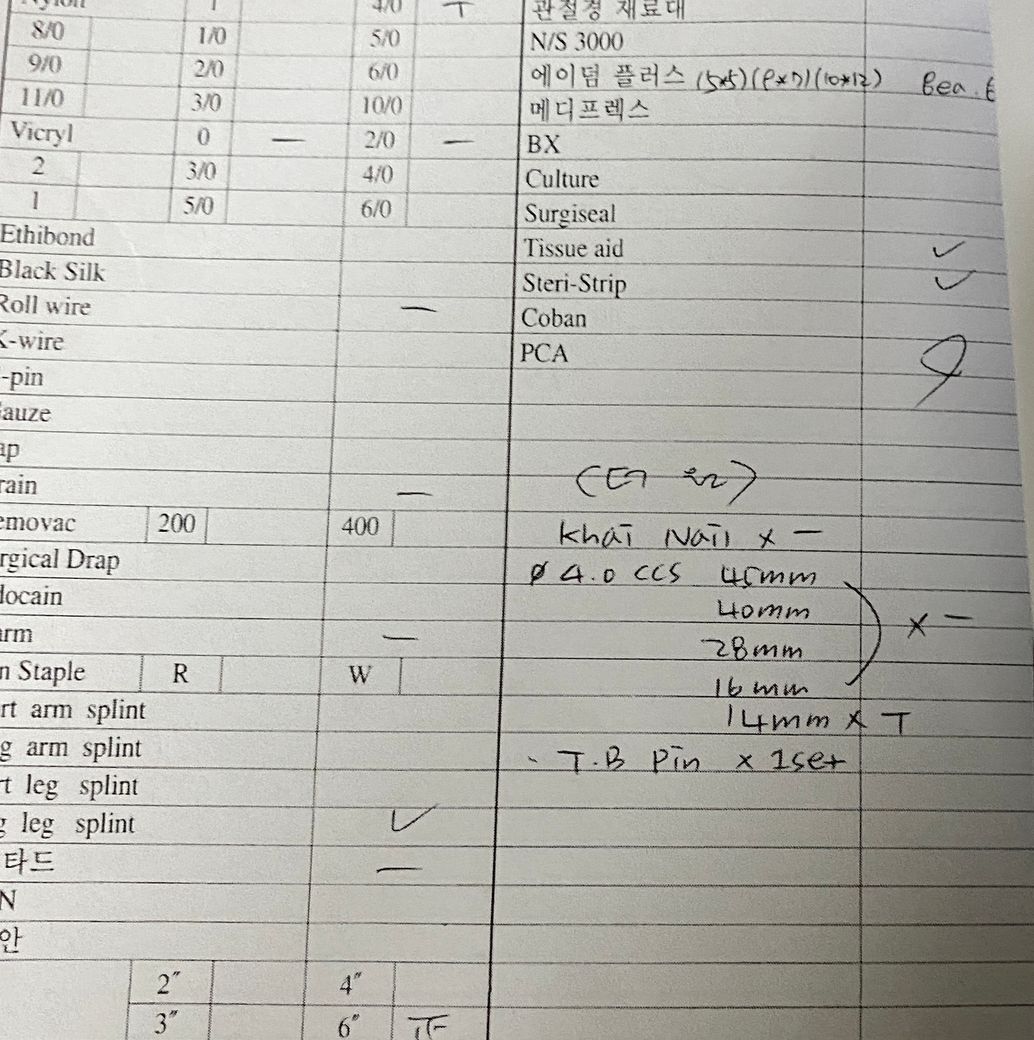 Nylon 1 4/0 T 관절경 재료대
8/0 1/0 5/0 N/S 3000
9/0 2/0 6/0 에이덤 플러스 (5*5) (10*12)
11/0 3/0 10/0 메디프레스
Vicryl 0 — 2/0 — BX
2 3/0 4/0 Culture
1 5/0 6/0 Surgiseal
Ethibond Tissue aid ✓
Black Silk Steri-Strip ✓
Roll wire — Coban
K-wire PCA
-pin
auze
ap
rain —
emovac 200 400 Khai Nail x —
rgical Drap ø 4.0 CCS 45mm
docain 40mm
arm — 28mm x —
n Staple R W 16mm
rt arm splint 14mm x T
g arm splint · T.B Pin x 1set
rt leg splint
g leg splint ✓
타드 —
N
안
2" 4"
3" 6"